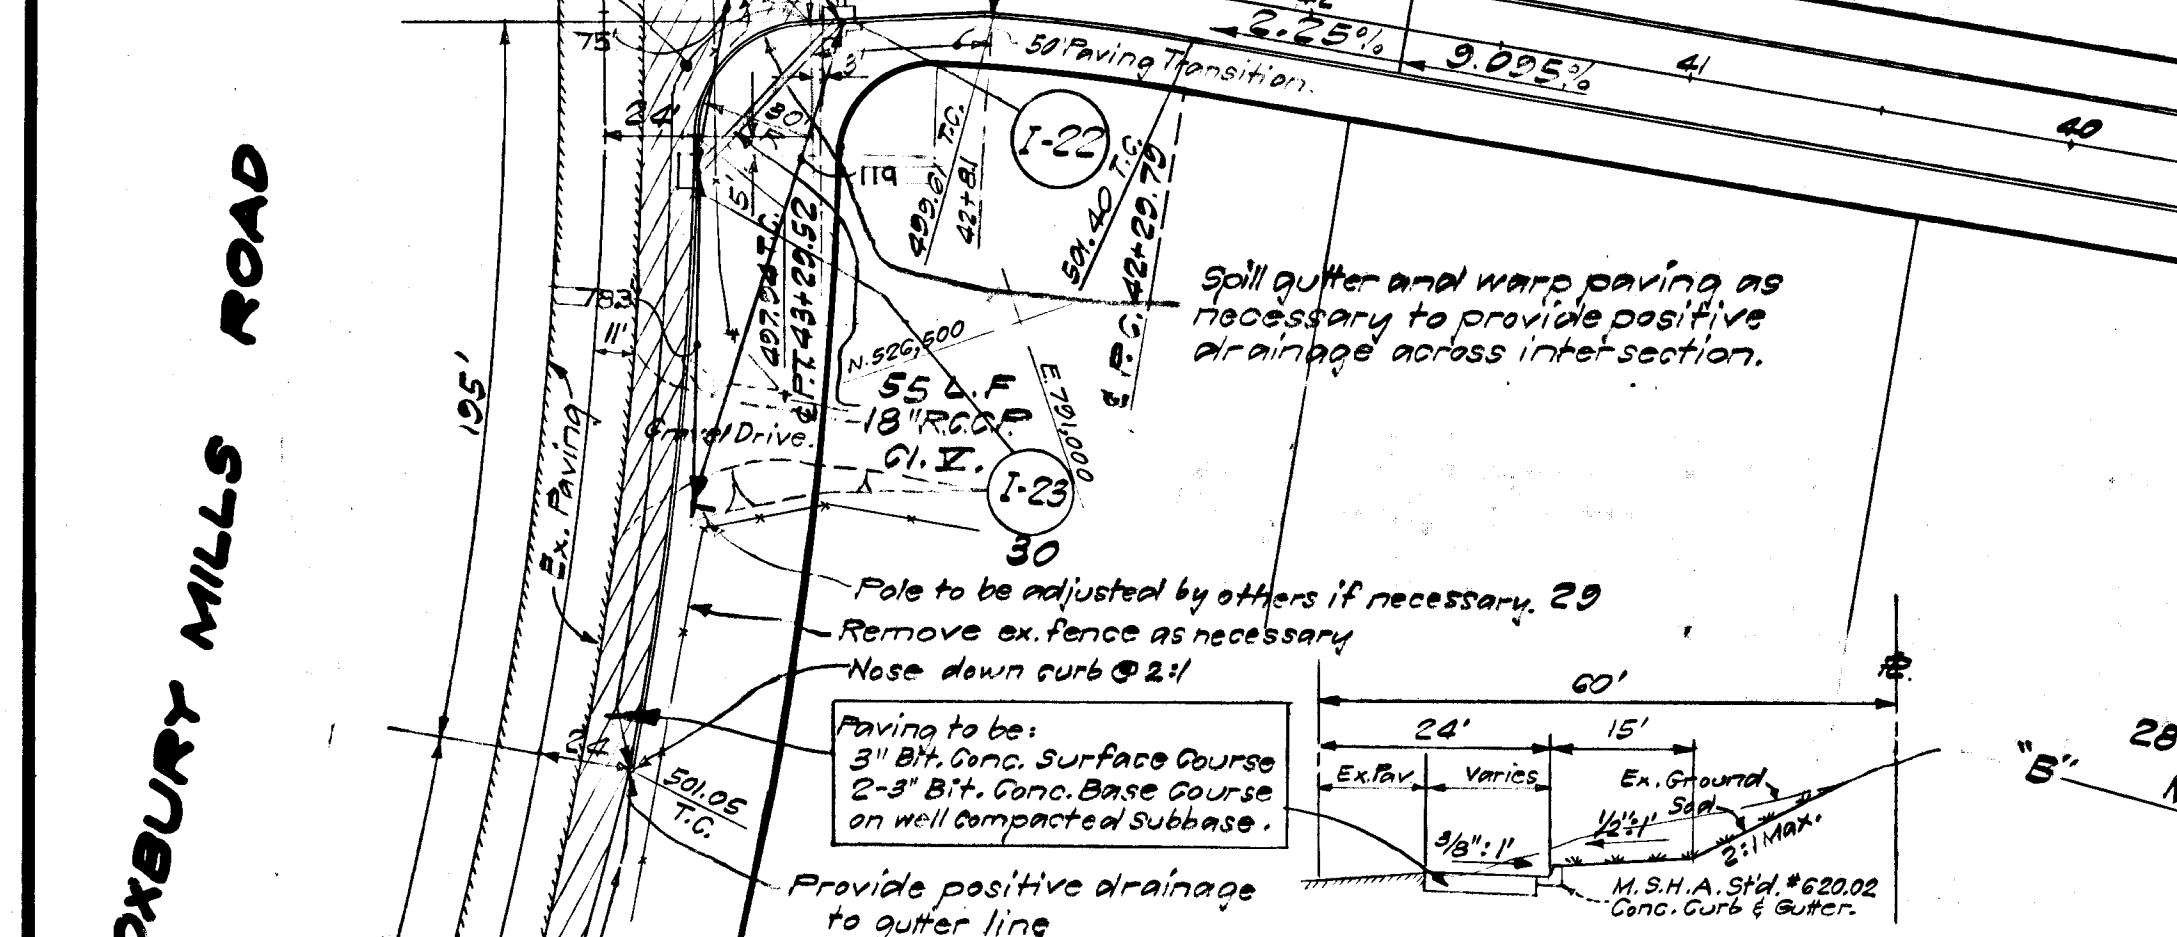 OXBURY MILLS ROAD
195'
75'
24'
3'
6'
50' Paving Transition.
2.25%
9.095%
42
41
40
80'
5'
119
I-22
499.61 T.C.
42+81
501.40 T.C.
℄ P.C. 42+29.79
℄ P.T. 43+29.52
783
11'
Ex. Paving
Gravel Drive.
N. 526,500
E. 791,000
55 L.F
18" R.C.C.P.
Cl. V.
I-23
30
Spill gutter and warp paving as
necessary to provide positive
drainage across intersection.
Pole to be adjusted by others if necessary.
29
Remove ex. fence as necessary
Nose down curb @ 2:1
Paving to be:
3" Bit. Conc. Surface Course
2-3" Bit. Conc. Base Course
on well compacted Subbase.
24
501.05
T.C.
Provide positive drainage
to gutter line
60'
24'
15'
Ex. Pav.
Varies
Ex. Ground
Sod
3/8":1'
1/2":1'
2:1 Max.
M.S.H.A. St'd. #620.02
Conc. Curb & Gutter.
"B"
28